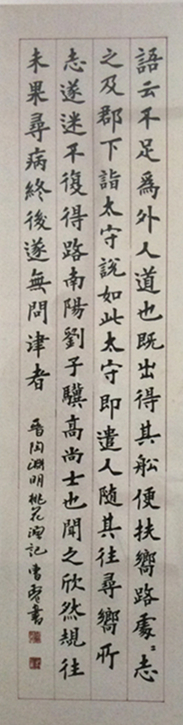 語云不足爲外人道也既出得其船便扶嚮路處〻志
之及郡下詣太守說如此太守即遣人隨其往尋嚮所
志遂迷不復得路南陽劉子驥高尚士也聞之欣然規往
未果尋病終後遂無問津者
晉陶淵明桃花源記
書